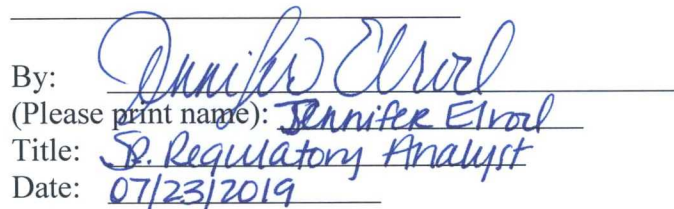 By: Jennifer Elrod
(Please print name): Jennifer Elrod
Title: SR. Regulatory Analyst
Date: 07/23/2019